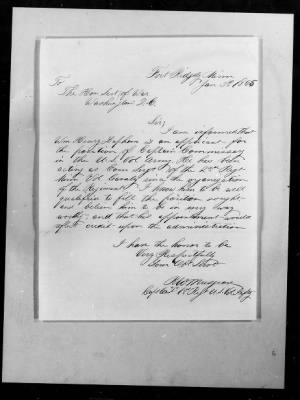 Fort Ridgely Minn
Jan 3d 1865
To
The Hon Sect of War
Washington D.C.
Sir;
I am informed that
Wm Henry is an applicant for
the position of Captain Commissary
in the U.S. Vol Army. He has been
acting as Com Sergt of the 2nd Regt
Minn Vol Cavalry since the organization
of the Regiment. I know him to be well
qualified to fill the position sought
and believe him to be in every way
worthy; and that his appointment would
reflect credit upon the administration
I have the honor to be
Very Respectfully
Your Obt Servt
Capt 1st Regt U.S. Vol Infty